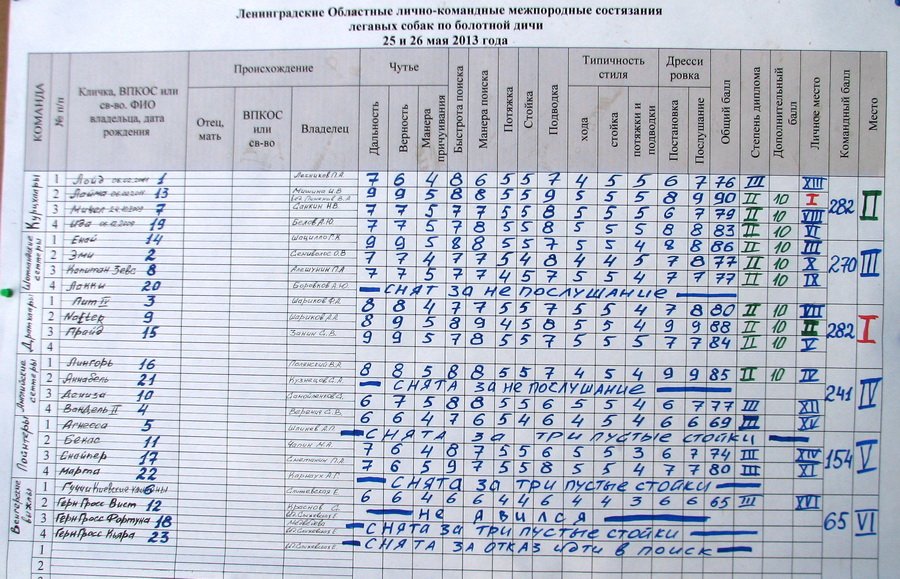 Ленинградские Областные лично-командные межпородные состязания
легавых собак по болотной дичи
25 и 26 мая 2013 года
КОМАНДА № п/п Кличка, ВПКОС или св-во. ФИО владельца, дата рождения Происхождение Отец, мать ВПКОС или св-во Владелец Чутье Дальность Верность Манера причуивания Быстрота поиска Манера поиска Потяжка Стойка Подводка Типичность стиля хода стойка потяжки и подводки Дресси ровка Постановка Послушание Общий балл Степень диплома Дополнительный балл Личное место Командный балл Место
Курцхаары 1 Лойд 1 Лесников П.А. 7 6 4 8 6 5 5 7 4 5 5 6 7 76 III XIII
2 13 Мишина И.В 9 9 5 8 8 5 5 9 5 5 5 8 9 90 II 10 I 282 II
3 7 Санкин Н.В. 7 7 5 7 7 5 5 8 5 5 5 6 7 79 II 10 VIII
4 Ида 19 Белов А.Ю. 7 7 5 7 8 5 5 8 5 5 5 8 8 83 II 10 VI
Шотландские сеттеры 1 Енай 14 Шацилло Г.К. 9 9 5 8 8 5 5 7 5 5 4 8 8 86 II 10 III
2 Эми 2 7 7 4 7 7 5 4 8 4 4 5 7 8 77 II 10 X 270 III
3 Капитан Зевс 8 7 7 5 7 7 4 5 7 5 5 4 7 7 77 II 10 IX
4 Лакки 20 Боровков А.Ю. СНЯТ за непослушание
Дратхаары 1 Лит IV 3 Шариков Ф.А. 8 8 4 7 7 5 5 7 5 5 4 7 8 80 II 10 VII
2 Nafter 9 Шариков 8 9 5 8 9 4 5 8 5 5 4 9 9 88 II 10 II 282 I
3 Прайд 15 Занин С.В. 9 9 5 7 8 5 5 7 5 5 5 7 7 84 II 10 V
4
Английские сеттеры 1 Лингорь 16 8 8 5 8 8 5 5 7 5 5 4 9 9 85 II 10 IV
2 Аннабель 21 Кузнецов С.А. СНЯТА за непослушание 241 IV
3 Дениза 10 6 7 5 8 8 5 5 6 5 5 4 6 7 77 III XII
4 Вандель II 4 6 6 4 7 6 5 4 6 4 5 4 6 6 69 III XV
Пойнтеры 1 Агнесса 5 СНЯТА за три пустые стойки
2 Бенас 11 7 6 4 8 7 5 5 6 5 5 3 6 7 74 III XIV 154 V
3 Снайпер 17 7 6 5 9 7 5 5 8 5 5 4 7 7 80 III XI
4 Марта 22 СНЯТА за три пустые стойки
Венгерские выжлы 1 Гуччи Киевские 6 6 6 4 6 6 4 4 6 4 4 3 6 6 65 III XVI
2 Герн Гросс Вист 12 не явился 65 VI
3 Герн Гросс Фортуна 18 СНЯТА за три пустые стойки
4 Герн Гросс Кьяра 23 СНЯТА за отказ идти в поиск
1
2